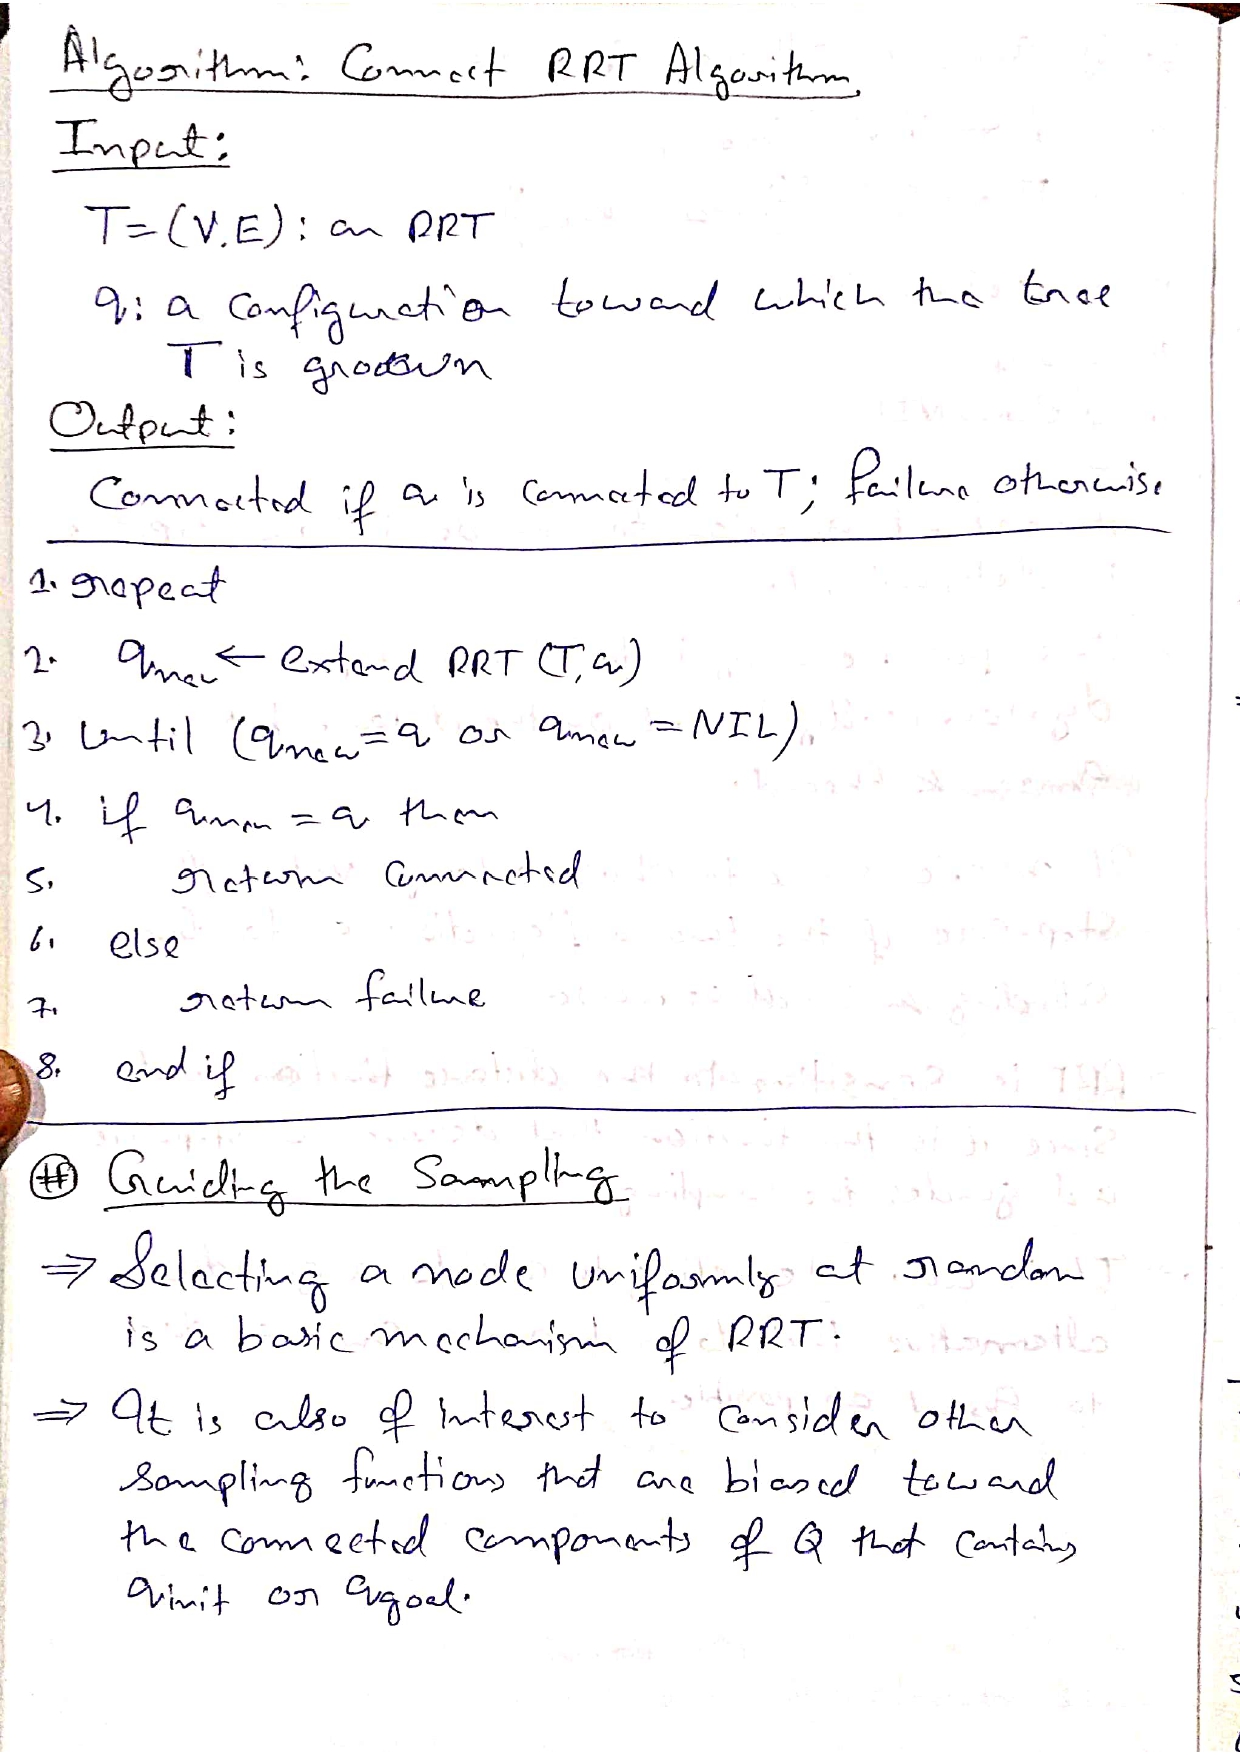 Algorithm: Connect RRT Algorithm
Input:
T=(V.E): an RRT
q: a configuration toward which the tree
T is grown
Output:
Connected if q is connected to T; failure otherwise
1. repeat
2. qnew ← extend RRT (T, q)
3. Until (qnew = q or qnew = NIL)
4. if qnew = q then
5. return connected
6. else
7. return failure
8. end if
# Guiding the Sampling
⇒ Selecting a node uniformly at random
is a basic mechanism of RRT.
⇒ It is also of interest to consider other
sampling functions that are biased toward
the connected components of Q that contains
qinit or qgoal.